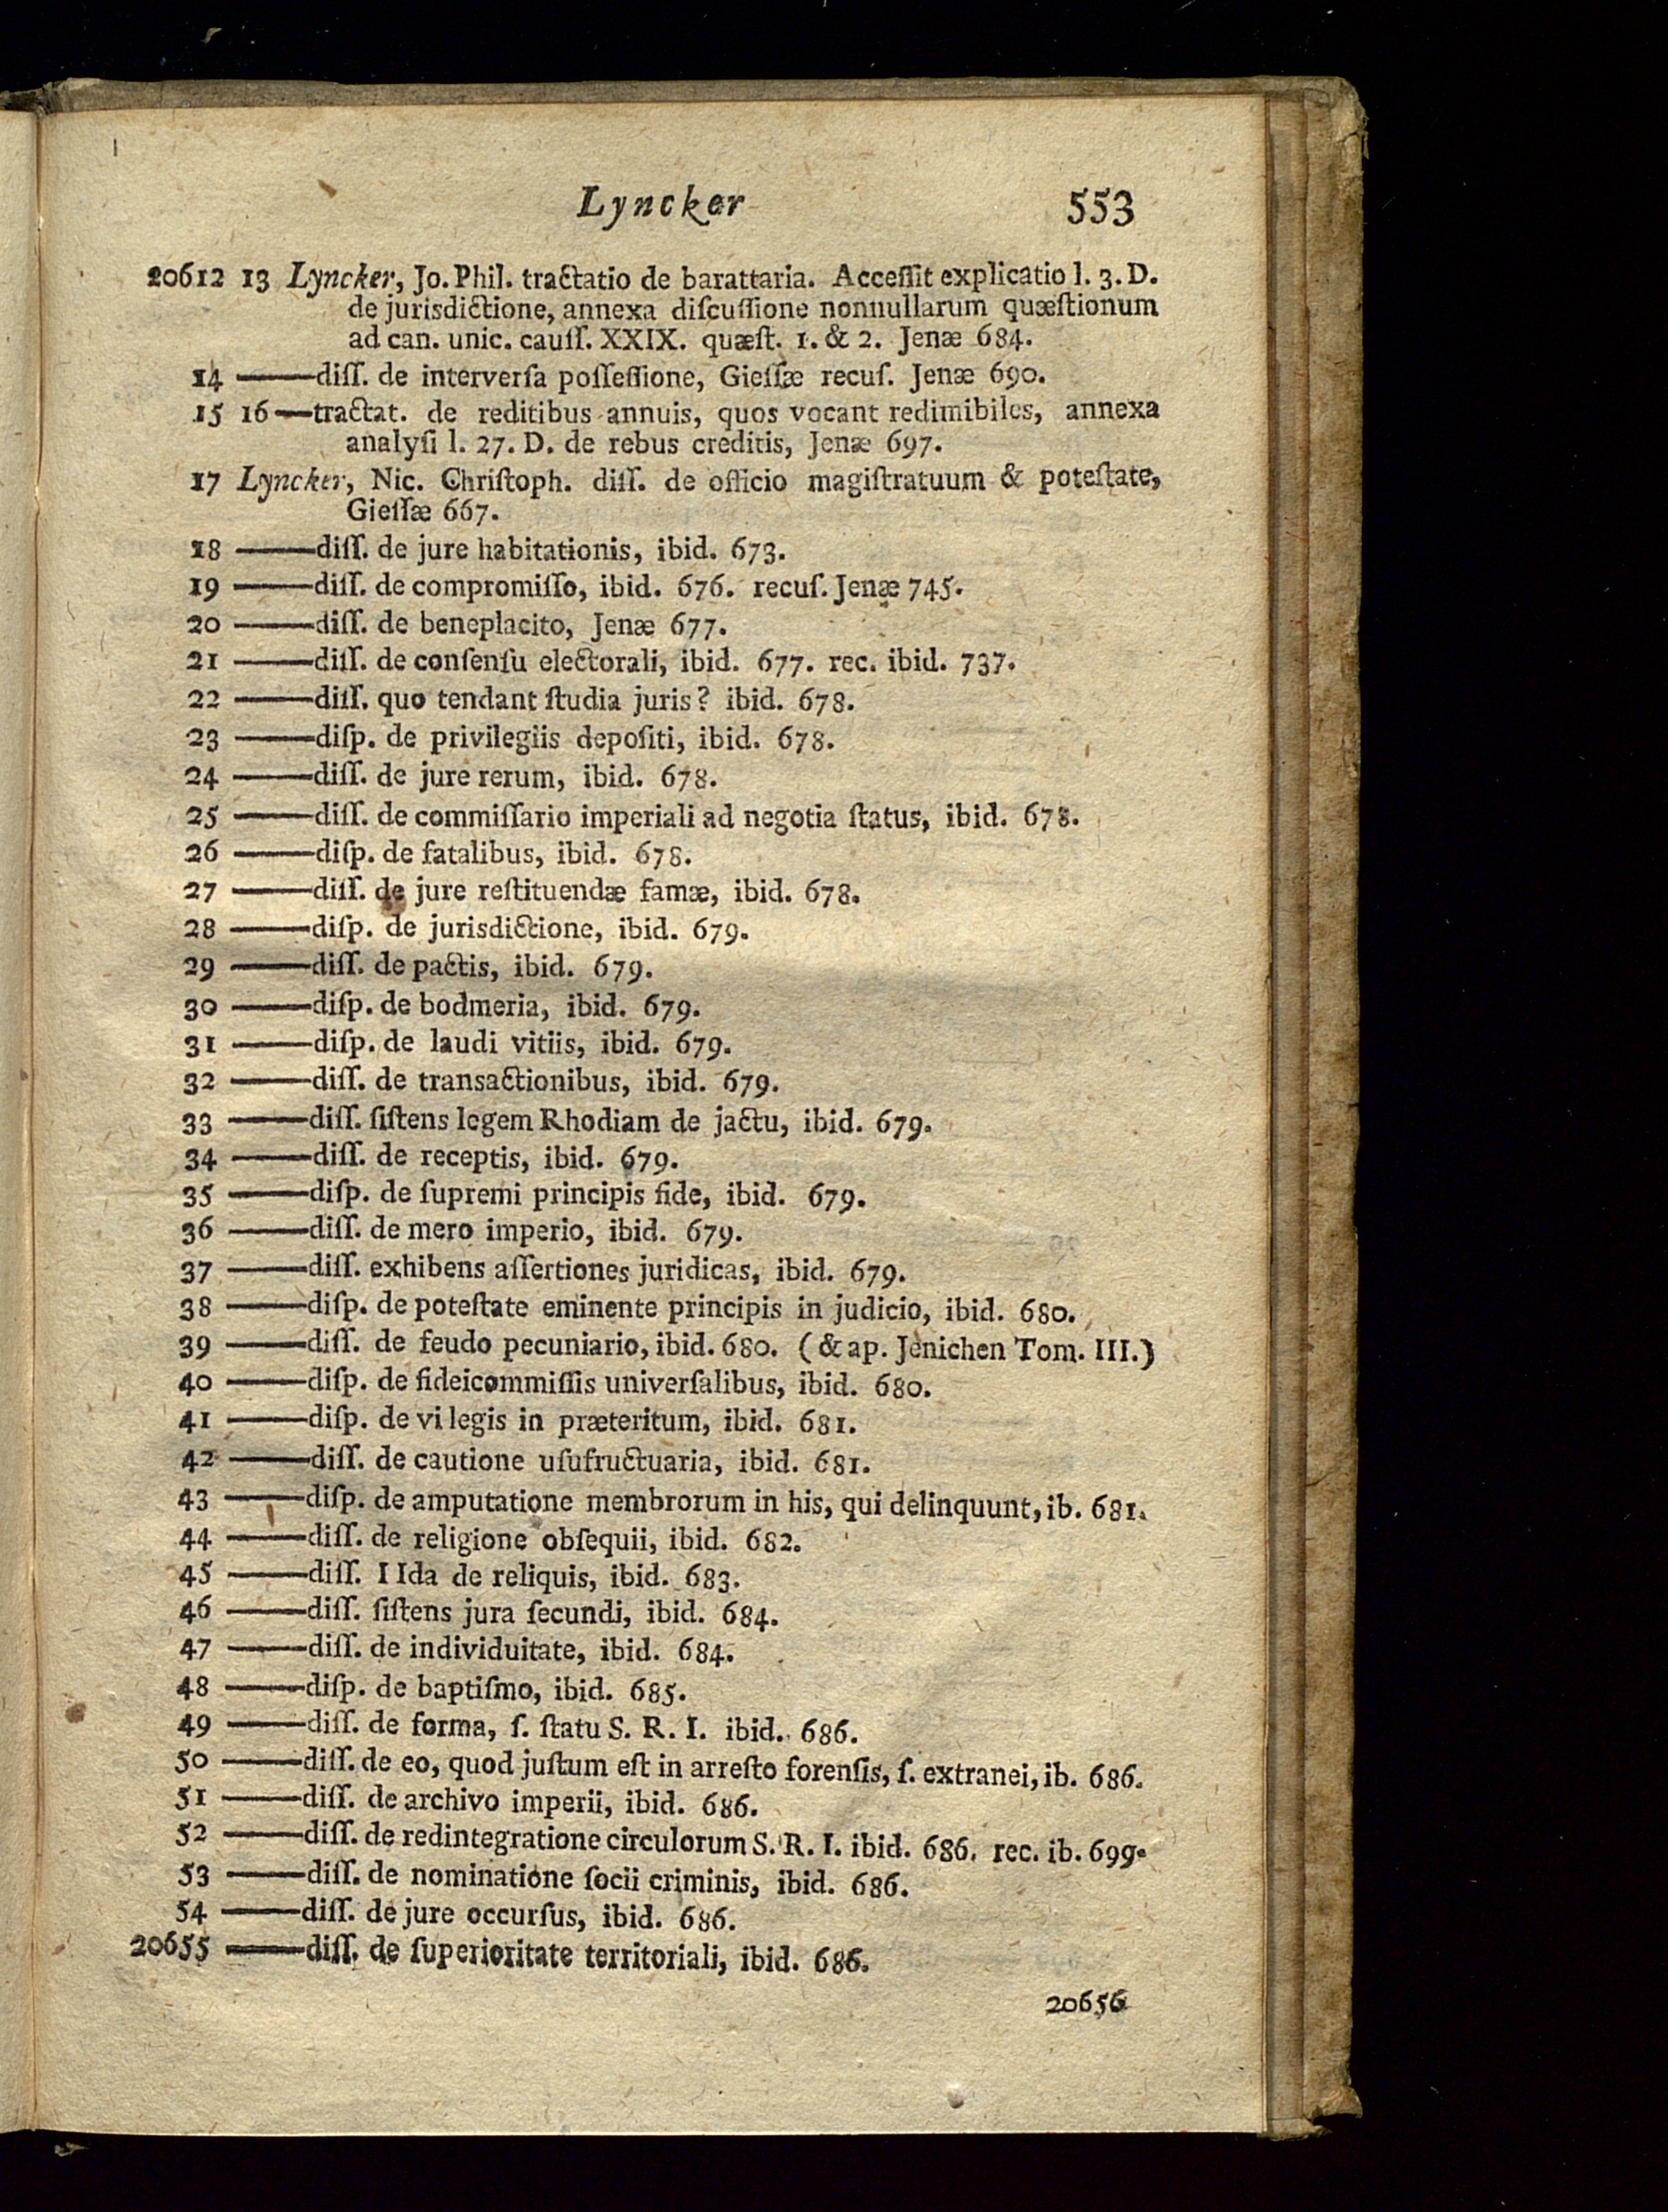 Lyncker 553
20612 13 Lyncker, Jo. Phil. tractatio de barattaria. Acceſſit explicatio l. 3. D.
de jurisdictione, annexa diſcuſſione nonnullarum quæſtionum
ad can. unic. cauſſ. XXIX. quæſt. 1. & 2. Jenæ 684.
14 ——diſſ. de interverſa poſſeſſione, Gieſſæ recuſ. Jenæ 690.
15 16—tractat. de reditibus annuis, quos vocant redimibiles, annexa
analyſi l. 27. D. de rebus creditis, Jenæ 697.
17 Lyncker, Nic. Chriſtoph. diſſ. de officio magiſtratuum & poteſtate,
Gieſſæ 667.
18 ——diſſ. de jure habitationis, ibid. 673.
19 ——diſſ. de compromiſſo, ibid. 676. recuſ. Jenæ 745.
20 ——diſſ. de beneplacito, Jenæ 677.
21 ——diſſ. de conſenſu electorali, ibid. 677. rec. ibid. 737.
22 ——diſſ. quo tendant ſtudia juris? ibid. 678.
23 ——diſp. de privilegiis depoſiti, ibid. 678.
24 ——diſſ. de jure rerum, ibid. 678.
25 ——diſſ. de commiſſario imperiali ad negotia ſtatus, ibid. 678.
26 ——diſp. de fatalibus, ibid. 678.
27 ——diſſ. de jure reſtituendæ famæ, ibid. 678.
28 ——diſp. de jurisdictione, ibid. 679.
29 ——diſſ. de pactis, ibid. 679.
30 ——diſp. de bodmeria, ibid. 679.
31 ——diſp. de laudi vitiis, ibid. 679.
32 ——diſſ. de transactionibus, ibid. 679.
33 ——diſſ. ſiſtens legem Rhodiam de jactu, ibid. 679.
34 ——diſſ. de receptis, ibid. 679.
35 ——diſp. de ſupremi principis fide, ibid. 679.
36 ——diſſ. de mero imperio, ibid. 679.
37 ——diſſ. exhibens aſſertiones juridicas, ibid. 679.
38 ——diſp. de poteſtate eminente principis in judicio, ibid. 680.
39 ——diſſ. de feudo pecuniario, ibid. 680. (& ap. Jenichen Tom. III.)
40 ——diſp. de fideicommiſſis univerſalibus, ibid. 680.
41 ——diſp. de vi legis in præteritum, ibid. 681.
42 ——diſſ. de cautione uſufructuaria, ibid. 681.
43 ——diſp. de amputatione membrorum in his, qui delinquunt, ib. 681.
44 ——diſſ. de religione obſequii, ibid. 682.
45 ——diſſ. IIda de reliquis, ibid. 683.
46 ——diſſ. ſiſtens jura ſecundi, ibid. 684.
47 ——diſſ. de individuitate, ibid. 684.
48 ——diſp. de baptiſmo, ibid. 685.
49 ——diſſ. de forma, ſ. ſtatu S. R. I. ibid. 686.
50 ——diſſ. de eo, quod juſtum eſt in arreſto forenſis, ſ. extranei, ib. 686.
51 ——diſſ. de archivo imperii, ibid. 686.
52 ——diſſ. de redintegratione circulorum S. R. I. ibid. 686. rec. ib. 699.
53 ——diſſ. de nominatione ſocii criminis, ibid. 686.
54 ——diſſ. de jure occurſus, ibid. 686.
20655 ——diſſ. de ſuperioritate territoriali, ibid. 686.
20656